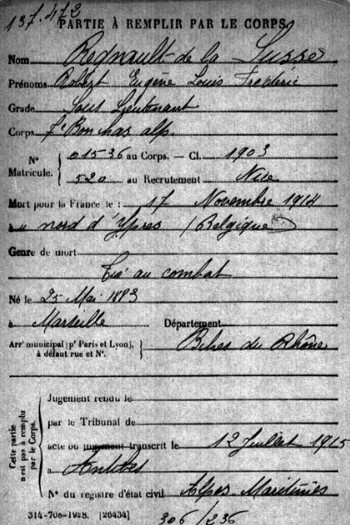 137.473
PARTIE À REMPLIR PAR LE CORPS
Nom Regnault de la Susse
Prénoms Robert Eugène Louis Frédéric
Grade Sous Lieutenant
Corps 7e Bon chas alp.
N° Matricule. { 01536 au Corps. — Cl. 1903
520 au Recrutement Nice
Mort pour la France le 17 Novembre 1914
au nord d'Ypres (Belgique)
Genre de mort
Tué au combat
Né le 25 Mai 1883
à Marseille Département Bches du Rhône
Arr' municipal (p' Paris et Lyon), à défaut rue et N°.
Cette partie n'est pas à remplir par le Corps.
Jugement rendu le
par le Tribunal de
acte ou jugement transcrit le 12 Juillet 1915
à Antibes
N° du registre d'état civil Alpes-Maritimes
306/236
314-708-1928. [26434]